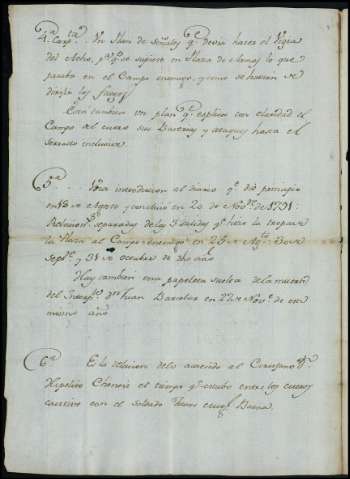 4ª Carpta. Un Plan de Señales qe devia hacer el Vigia
del Acho, pª qe se supiese en Plaza de Armas lo que
pasaba en el Campo enemigo, y como se havian de
dirigir los fuegos
Està tambien un plan qe explica con claridad el
Campo del
sus Baterias y ataques hasta el
inclusive.
5ª .. Una introduccion al diario qe diò principio
en 18 de Agosto y concluiò en 20 de Novre de 1791:
Relacion separadas de las 3 salidas qe hizo la tropa de
la Plaza al Campo enemigo en 25 de Agto
Septre y 31 de octubre de dho año
Hay tambien una papeleta suelta de la muerte
del
Dn Juan Barcelos en 22 de Novre de ese
mismo año
6ª Es la relacion de lo acaecido al Cirujano Dn
Hipolito
el tiempo qe estubo entre los
cautivo con el soldado